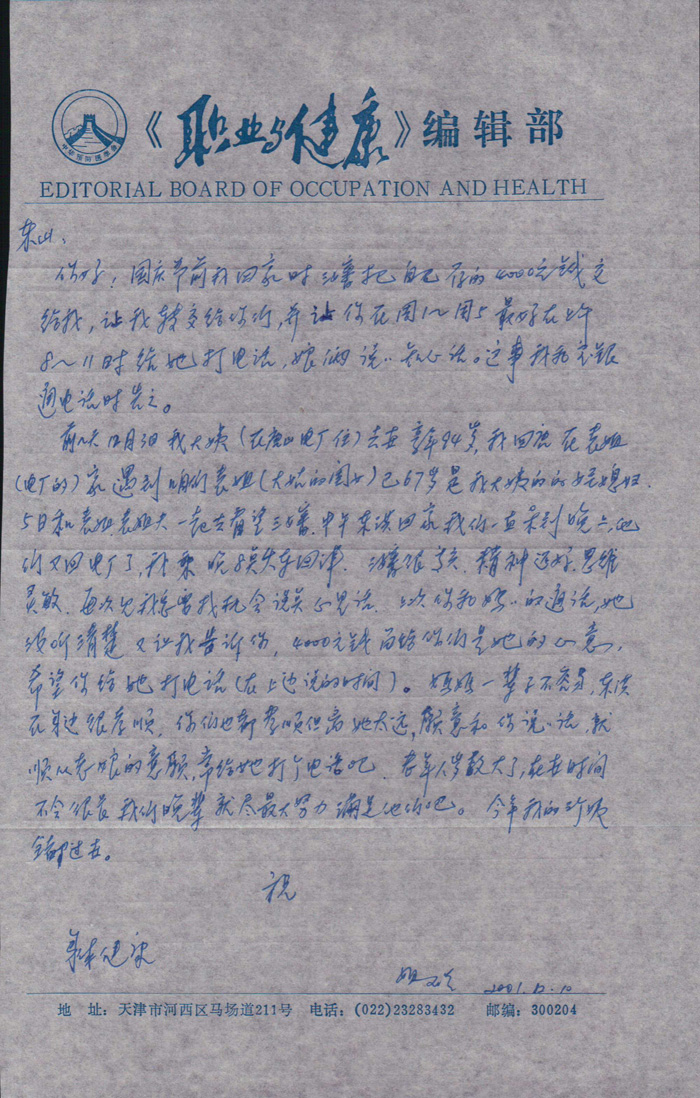 中华预防医学会
《职业与健康》编辑部
EDITORIAL BOARD OF OCCUPATION AND HEALTH
东山:
你好!国庆节前我回家时三婶把自己存的4000元钱交
给我,让我转交给你们,并让你在周1~周5最好在上午
8~11时给她打电话,娘俩说说知心话。这事我和
通电话时告之。
前几天12月3日我大姨(在唐山电厂住)去世享年94岁,我回唐在表姐
(电厂的)家遇到咱们表姐(大姑的闺女)已67岁是我大姨的的媳妇.
5日和表姐表姐夫一起去看望三婶.中午东滨回家我们一直呆到晚六,他
们又回电厂了,我乘晚8点火车回津.三婶很高兴.精神还好.思维
灵敏.再次见我总要找机会说说心里话.上次你和妈妈的通话,她
没听清楚又让我告诉你,4000元钱留给你们是她的心意,
希望你给她打电话(在上边说的时间)。妈妈一辈子不容易,东滨
在身边很孝顺.你们也都孝顺但离她太远,愿意和你说说话,就
顺从老娘的意愿,常给她打个电话吧.老年人岁数大了,在世时间
不会很长我们晚辈就尽最大努力满足他们吧。今年我的
全都过世。
祝
身体健康
姐 2001.12.10
地 址:天津市河西区马场道211号 电话:(022)23283432 邮编:300204